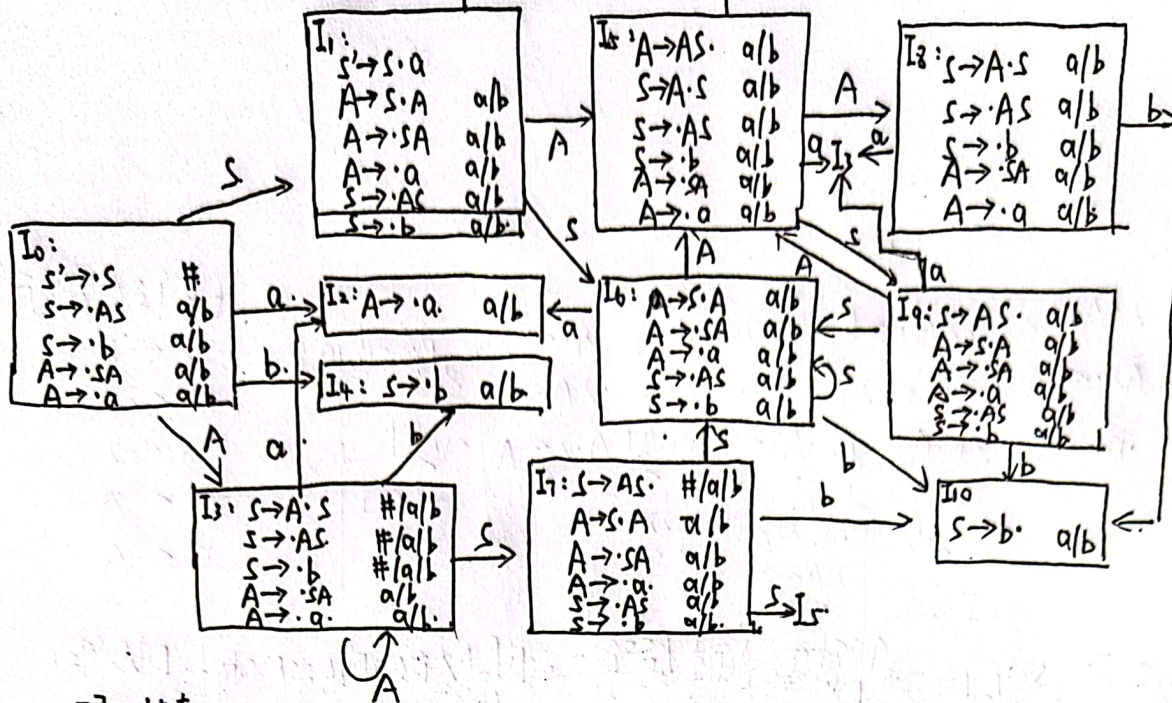 I1:
S'→S·a
A→S·A a/b
A→·SA a/b
A→·a a/b
S→·AS a/b
S→·b a/b
I5: A→AS· a/b
S→A·S a/b
S→·AS a/b
S→·b a/b
A→·SA a/b
A→·a a/b
I8: S→A·S a/b
S→·AS a/b
S→·b a/b
A→·SA a/b
A→·a a/b
A
A
a
I3
a
b
S
S
S
A
A
a
I0:
S'→·S #
S→·AS a/b
S→·b a/b
A→·SA a/b
A→·a a/b
a·
b·
I2: A→·a· a/b
I4: S→·b a/b
a
I6: A→S·A a/b
A→·SA a/b
A→·a a/b
S→·AS a/b
S→·b a/b
S
S
I9: S→AS· a/b
A→S·A a/b
A→·SA a/b
A→·a a/b
S→·AS a/b
S→·b a/b
A
a
b
S
b
b
I3: S→A·S #/a/b
S→·AS #/a/b
S→·b #/a/b
A→·SA a/b
A→·a· a/b·
S
I7: S→AS· #/a/b
A→S·A a/b
A→·SA a/b
A→·a· a/b
S→·AS a/b
S→·b a/b·
b
S
I5
I10
S→b· a/b
A